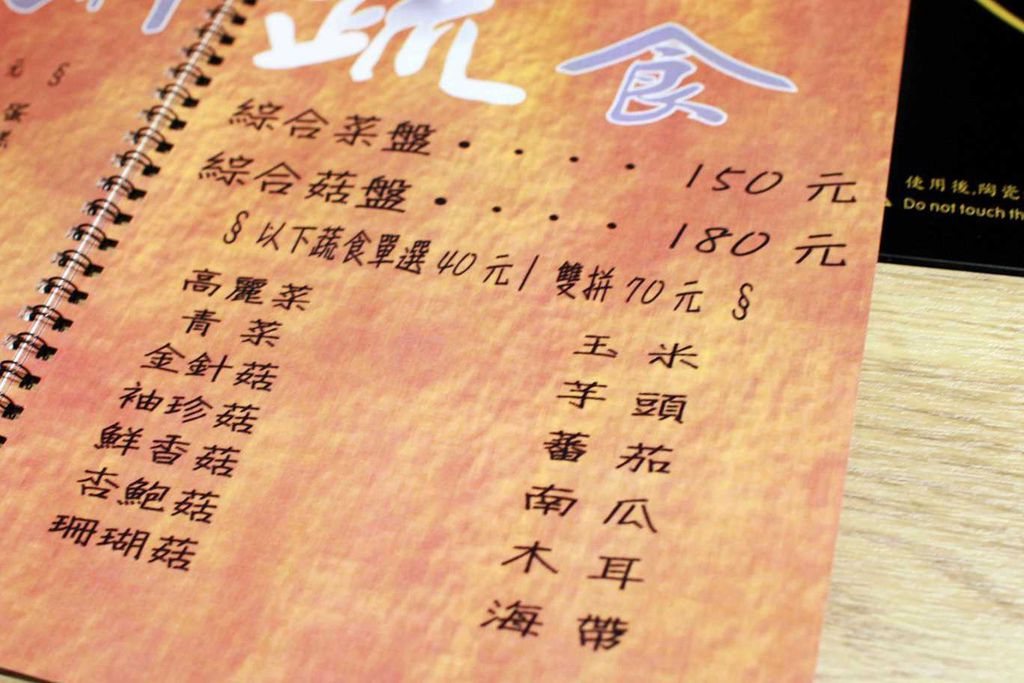 蔬食
綜合菜盤 · · · · 150元
綜合菇盤 · · · · 180元
§以下蔬食單選40元/雙拼70元§
高麗菜
青菜
金針菇
袖珍菇
鮮香菇
杏鮑菇
珊瑚菇
玉米
芋頭
蕃茄
南瓜
木耳
海帶
元 §
使用後,陶瓷
Do not touch th